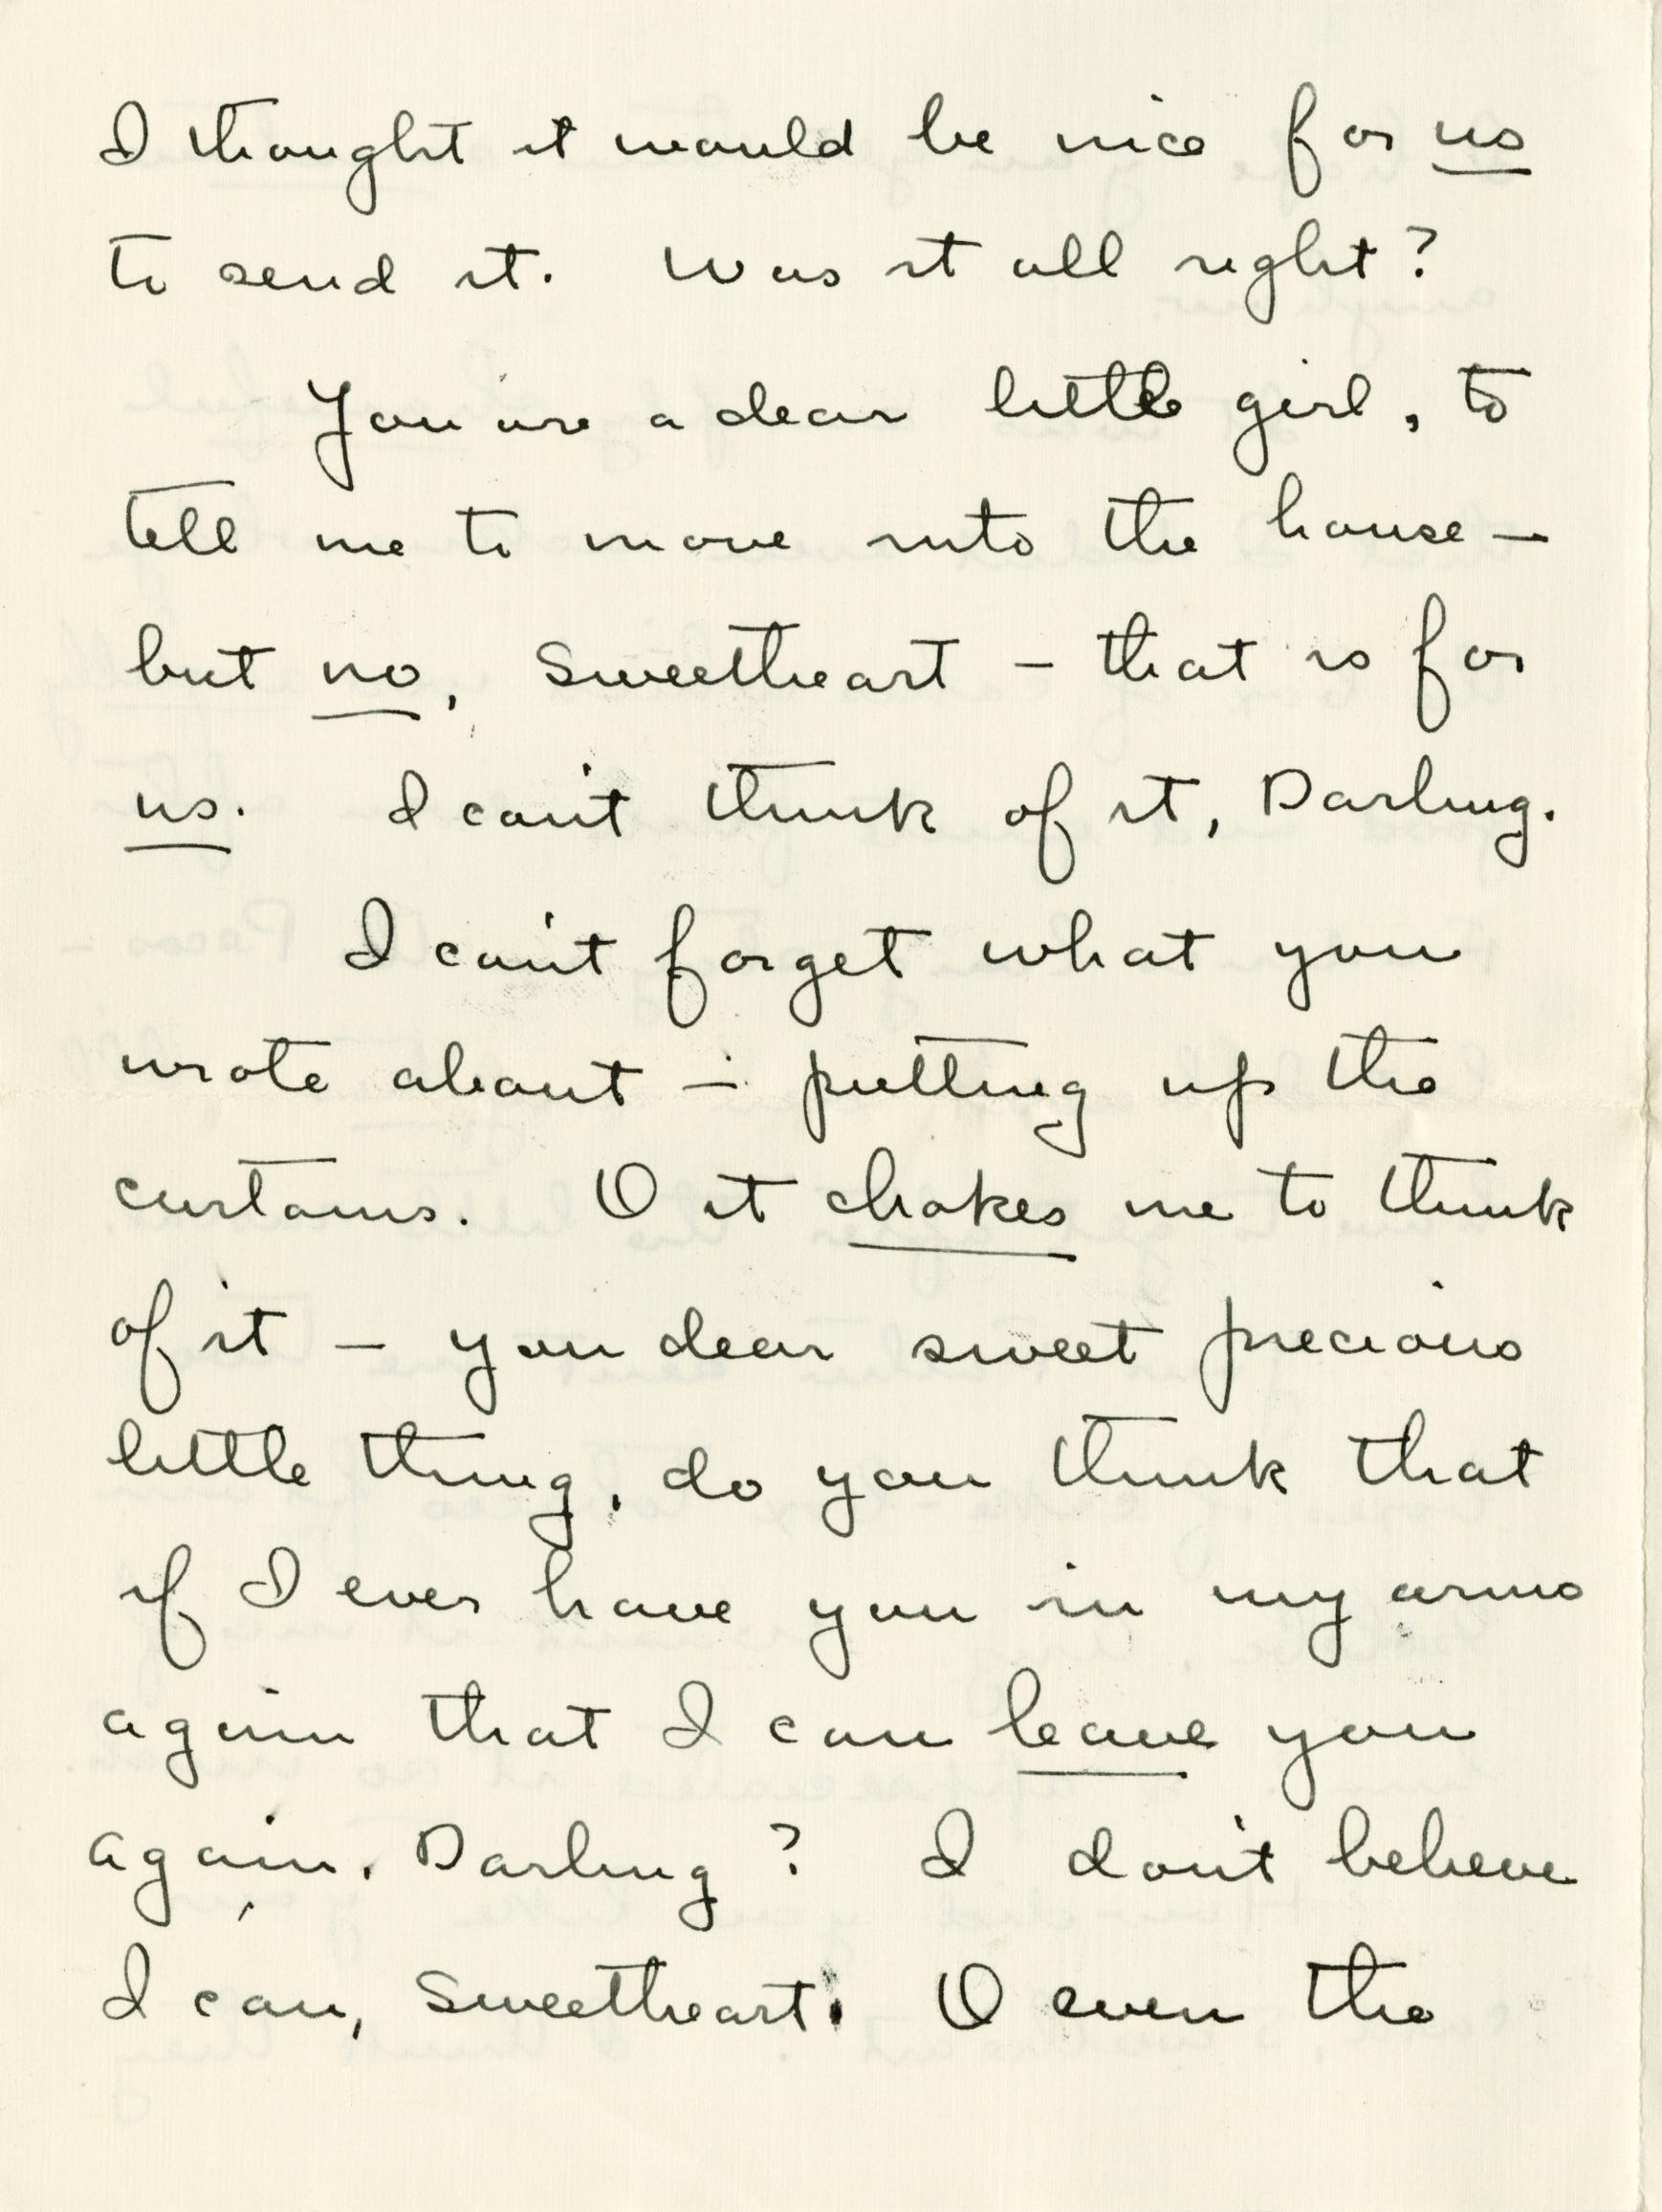 I thought it would be nice for us
to send it. Was it all right?
You are a dear little girl, to
tell me to move into the house —
but no, Sweetheart — that is for
us. I can't think of it, Darling.
I can't forget what you
wrote about — putting up the
curtains. O it chokes me to think
of it — you dear sweet precious
little thing, do you think that
if I ever have you in my arms
again that I can leave you
again, Darling? I don't believe
I can, Sweetheart. O even the